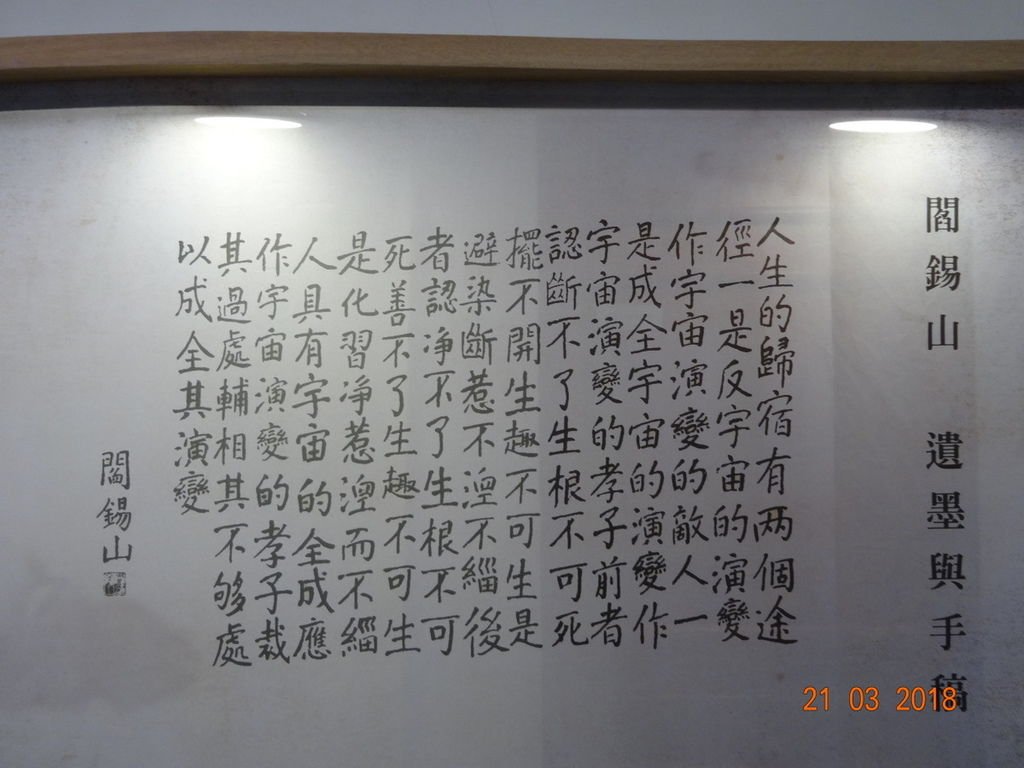 閻錫山 遺墨與手稿
人生的歸宿有两個途
徑一是反宇宙的演變
作宇宙演變的敵人一
是成全宇宙的演變作
宇宙演變的孝子前者
認斷不了生根不可死
擺不開生趣不可生是
避染斷惹不湼不緇後
者認净不了生根不可
死善不了生趣不可生
是化習净惹湼而不緇
人具有宇宙的全成應
作宇宙演變的孝子裁
其過處輔相其不够處
以成全其演變
閻錫山
21 03 2018